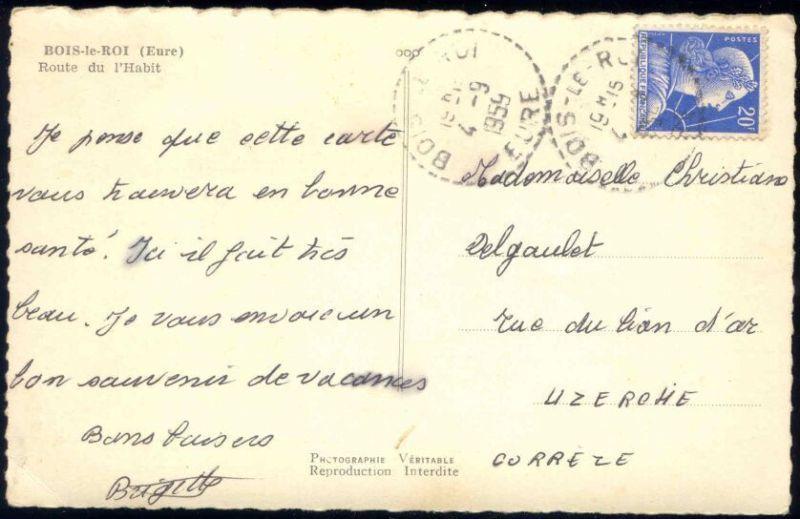 BOIS-le-ROI (Eure)
Route du l'Habit
Je pense que cette carte
vous trouvera en bonne
santé. Ici il fait très
beau. Je vous envoie un
bon souvenir de vacances
Bons baisers
Brigitte
PHOTOGRAPHIE VÉRITABLE
Reproduction Interdite
BOIS-LE-ROI
19H15
4-9
1959
EURE
BOIS-LE-RO
19H15
4
POSTES
REPUBLIQUE FRANCAISE
20F
Mademoiselle Christiane
Delgaulet
rue du lion d'or
UZERCHE
CORRÈZE